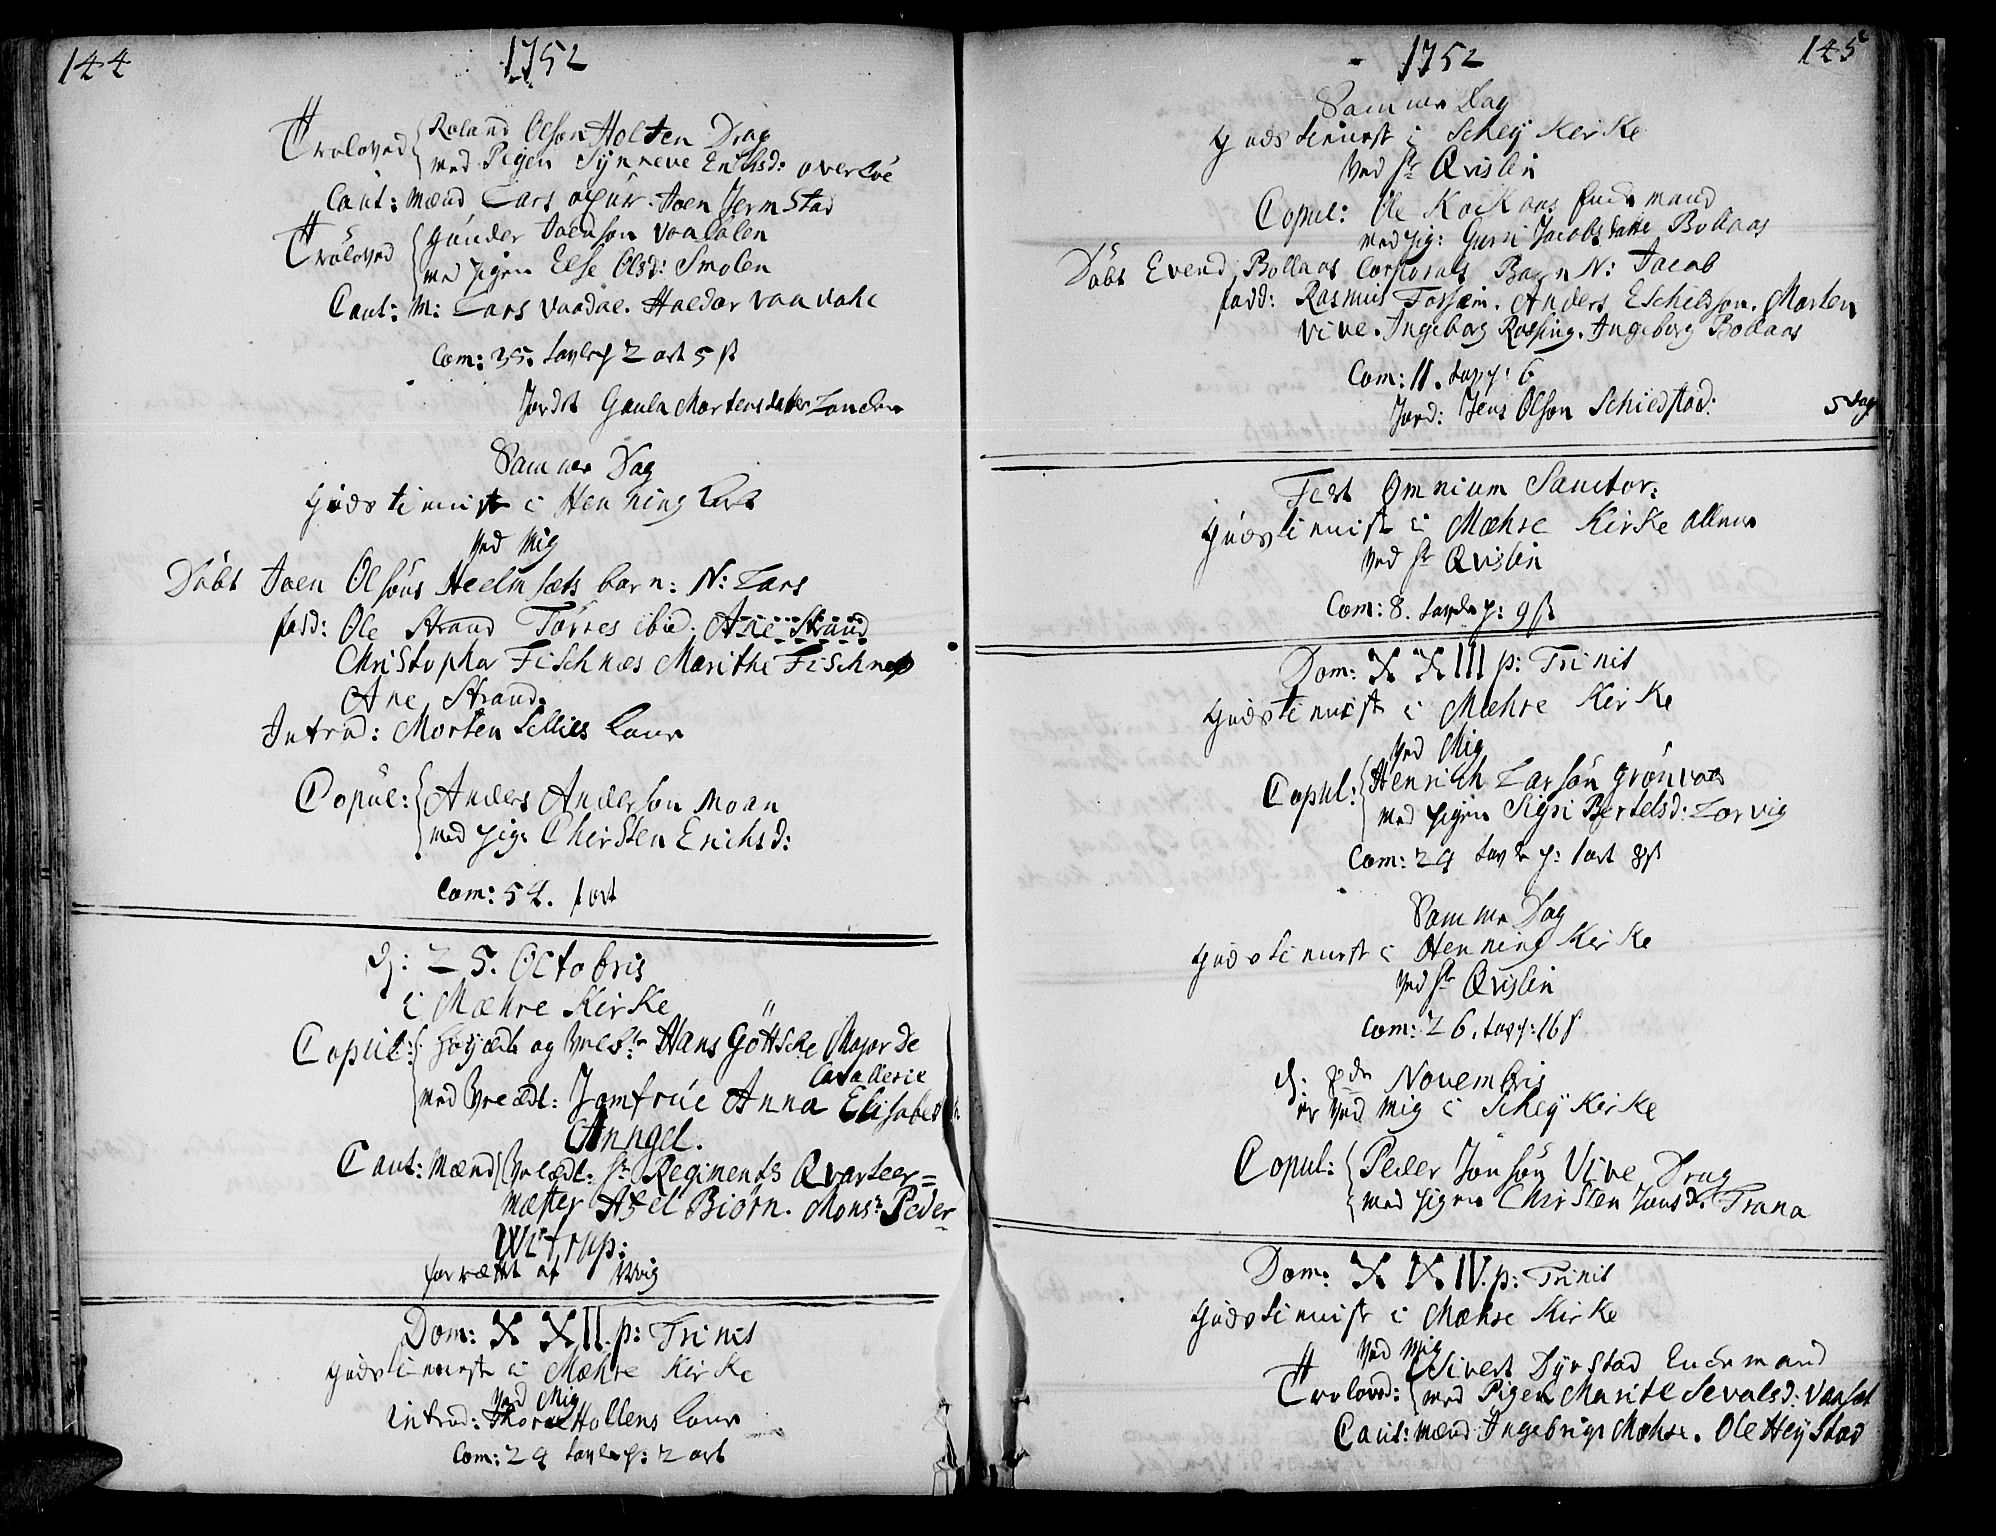 144
1752
Troloved Roland Olsøn Holten Drag
med Pigen Synneve Erichsd: overLøe
Caut: Mænd Lars ogsaa Joen JermStad
Troloved Gunder Joensøn Vaadalen
med pigen Else Olsd: Smolen
Caut: M: Lars Vaadal. Haldor Vaadahl
Com: 35. tavle p: 2 ort 5 s
Jordet Gaula Mortensdatter
Samme Dag
Gudstienist i Henning Kirke
ved Mig
Døbt Joen Olsøns Heelmsæts barn: N: Lars
fadd: Ole Strand Torres ibid. Ane Strand
Christopher Fischnæs Marithe Fischnes
Ane Strand.
Introd: Morten Sellies Kone
Copul: Anders Andersøn Moan
med pig: Chirsten Erichsd:
Com: 54. 1 ort
d: 25. Octobris
i Mæhre Kirke
Copul: Høyædle og Velb:r Hans Göttsche Major De
Cavallerie
med Velædl: Jomfrue Anna Elisabeth
Anngel.
Caut: Mænd Velædl: Sr Regiments Qvarteer=
mæster Axel Biørn. Mons:r Peder
Witrup:
forrættet af Mig
Dom: XXII. p: Trinit
Gudstienist i Mæhre Kirke
ved Mig
introd: Hollens Kone
Com: 24 tavle p: 2 ort
1752
145
Samme Dag
Gudstienist i Schey Kirke
ved Hr Qvislin
Copul: Ole KocKaas Enchemand
med pig: Guri Jacobsdatter Bollaas
Døbt Evend Bollaas Corporals Barn N: Jacob
fadd: Rasmus Fossem. Anders Eschildsøn. Morten
Vive. Ingeborg Røsing. Ingeborg Bollaas
Com: 11. tav p: 6
Jord: Jens Olsøn Schiedstad: 5 dag
Fest Omnium Sanctor:
Gudstienist i Mæhre Kirke allene
ved Hr Qvislin
Com: 8. tavle p: 9 s
Dom: XXIII p: Trinit
Gudstienist i Mæhre Kirke
ved Mig
Copul: Henrich Larsøn Grønaas
med pigen Sigri Bertelsd: Lorvig
Com: 24 tavle p: 1 ort 8 s
Samme Dag
Gudstienist i Henning Kirke
ved Hr Qvislin
Com: 26. tav p: 16 s
d: 8de Novembris
er ved Mig i Schey Kirke
Copul: Peder Jonsøn Vive Drag
med pigen Chirsten Jonsd: Trana
Dom: XXIV. p: Trinit
Gudstienist i Mæhre Kirke
ved Mig
Troloved: Sivert Dyrstad Enchemand
med Pigen Marite Sevalsd: Vaaset
Caut: mænd Ingebrigt Mæhre. Ole HeyStad